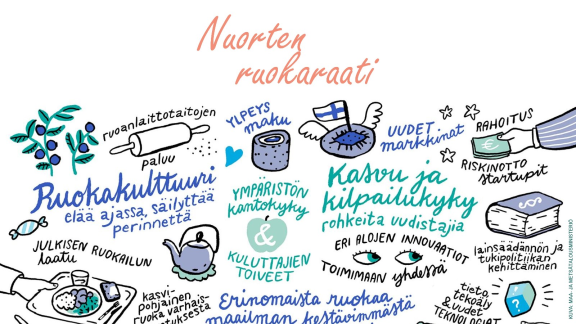 Nuorten
ruokaraati
ruoanlaittotaitojen
paluu
YLPEYS
maku
UUDET
markkinat
RAHOITUS
RISKINOTTO
startupit
Ruokakulttuuri
elää ajassa, säilyttää
perinnettä
YMPÄRISTÖN
kantokyky
&
KULUTTAJIEN
TOIVEET
Kasvu ja
kilpailukyky
rohkeita uudistajia
ERI ALOJEN INNOVAATIOT
TOIMIMAAN yhdessä
lainsäädännön ja
tukipolitiikan
kehittäminen
JULKISEN RUOKAILUN
laatu
kasvi-
pohjainen
ruoka varhais-
Erinomaista ruokaa
maailman kestävimmästä
tieto,
tekoäly
& uudet
?
KUVA: MAA- JA METSÄTALOUSMINISTERIÖ